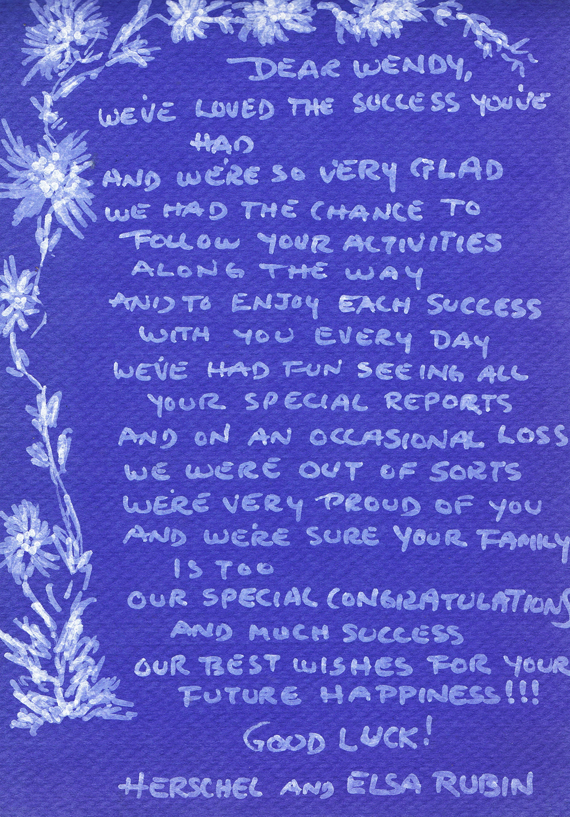 DEAR WENDY,
WE'VE LOVED THE SUCCESS YOU'VE
HAD
AND WE'RE SO VERY GLAD
WE HAD THE CHANCE TO
FOLLOW YOUR ACTIVITIES
ALONG THE WAY
AND TO ENJOY EACH SUCCESS
WITH YOU EVERY DAY
WE'VE HAD FUN SEEING ALL
YOUR SPECIAL REPORTS
AND ON AN OCCASIONAL LOSS
WE WERE OUT OF SORTS
WE'RE VERY PROUD OF YOU
AND WE'RE SURE YOUR FAMILY
IS TOO
OUR SPECIAL CONGRATULATIONS
AND MUCH SUCCESS
OUR BEST WISHES FOR YOUR
FUTURE HAPPINESS!!!
GOOD LUCK!
HERSCHEL AND ELSA RUBIN